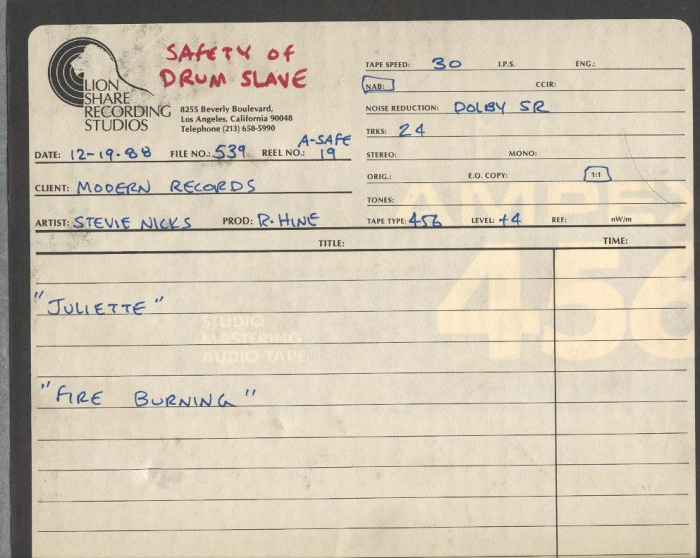 SAFETY OF
DRUM SLAVE
LION
SHARE
RECORDING
STUDIOS
8255 Beverly Boulevard,
Los Angeles, California 90048
Telephone (213) 658-5990
TAPE SPEED: 30 I.P.S. ENG.:
NAB: CCIR:
NOISE REDUCTION: DOLBY SR
TRKS: 24
A-SAFE
DATE: 12-19-88 FILE NO.: 539 REEL NO.: 19
STEREO: MONO:
ORIG.: E.Q. COPY: 1:1
CLIENT: MODERN RECORDS
TONES:
ARTIST: STEVIE NICKS PROD: R. HINE
TAPE TYPE: 456 LEVEL: +4 REF: nW/m
AMPEX
TITLE: TIME:
456
"JULIETTE"
STUDIO
MASTERING
AUDIO TAPE
"FIRE BURNING"